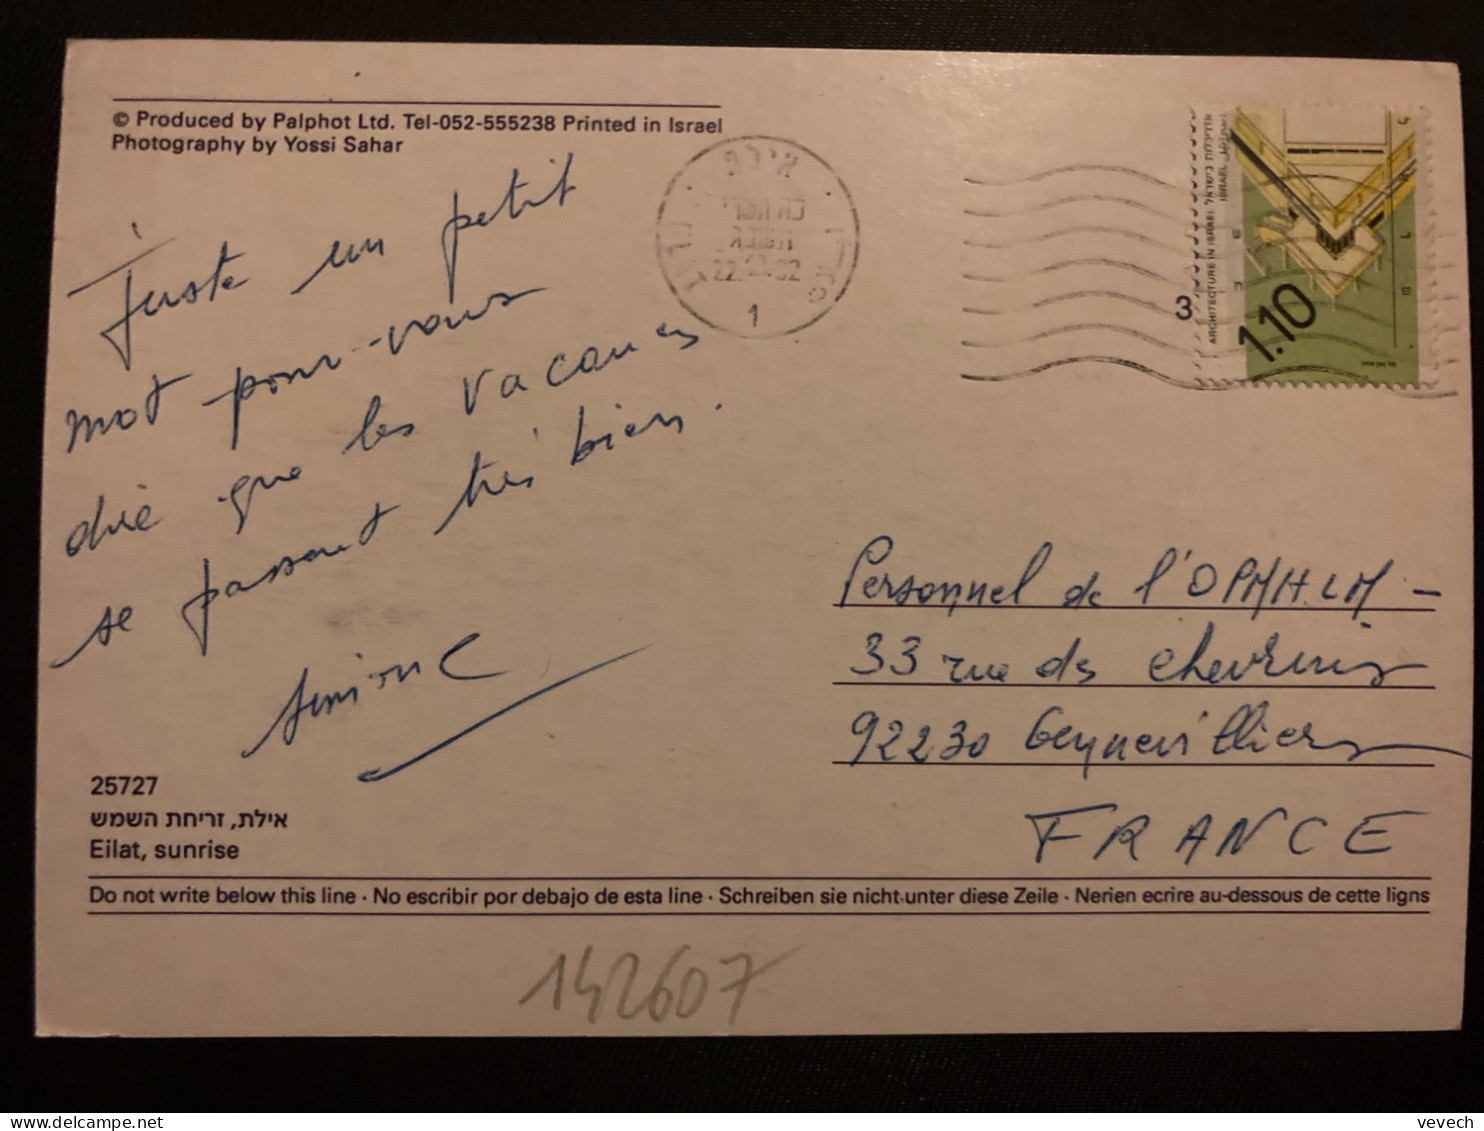 © Produced by Palphot Ltd. Tel-052-555238 Printed in Israel
Photography by Yossi Sahar
Juste un petit
mot pour vous
dire que les vacances
se passent très bien.
25727
אילת, זריחת השמש
Eilat, sunrise
1
3
ARCHITECTURE IN ISRAEL אדריכלות בישראל
ISRAEL
1.10
Personnel de l'OPMHLM -
33 rue des Chevrins
92230 Gennevilliers
FRANCE
Do not write below this line · No escribir por debajo de esta line · Schreiben sie nicht unter diese Zeile · Nerien ecrire au-dessous de cette ligns
142607
vevech